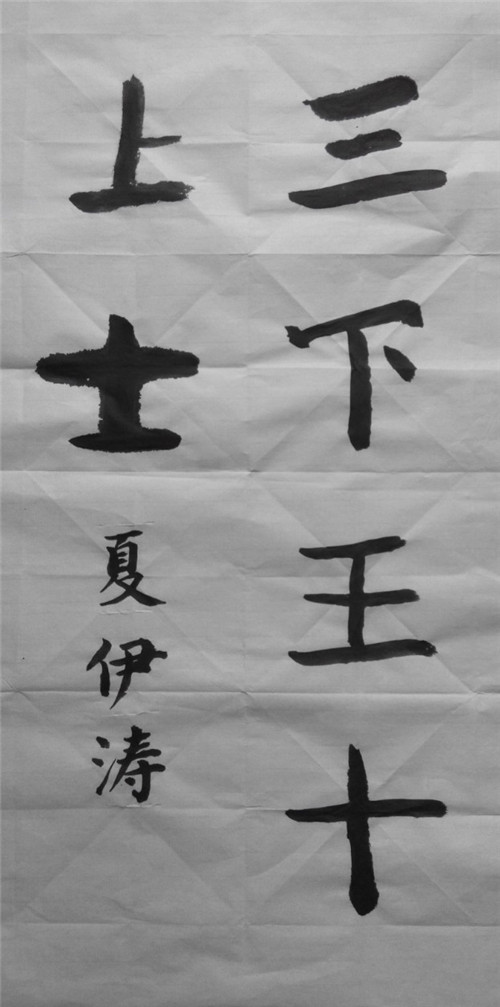 三下王十
上士
夏伊涛